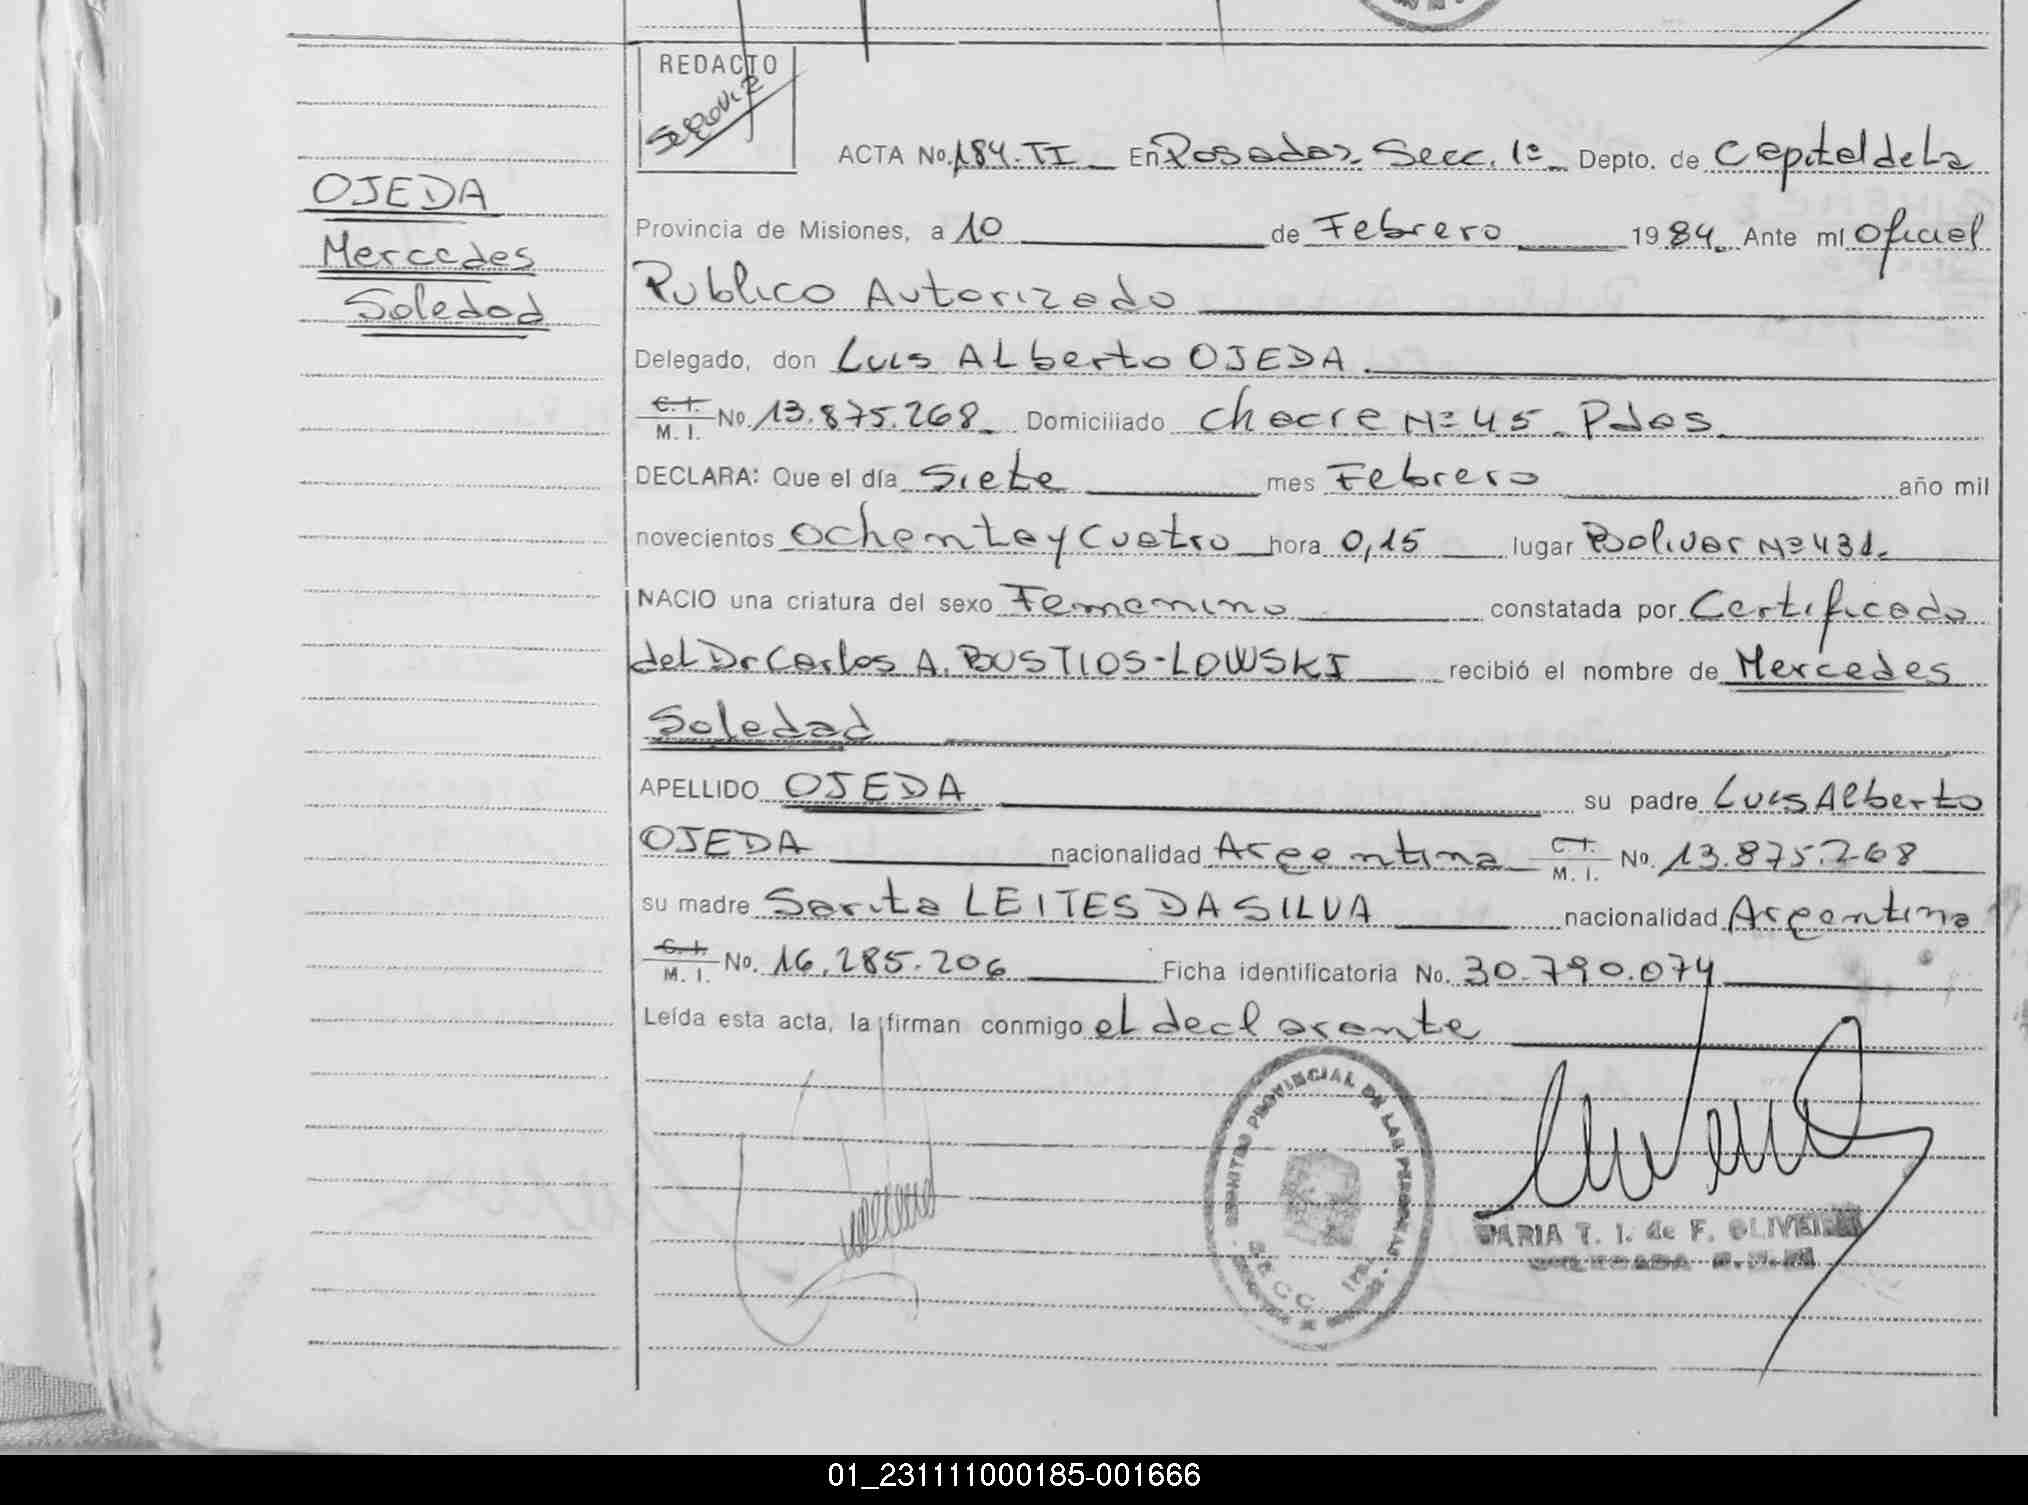 REDACTO
Segovia
OJEDA
Mercedes
Soledad
ACTA No. 184. TI En Posadas Secc. 1ª Depto. de Capital de La
Provincia de Misiones, a 10 de Febrero 1984. Ante mí Oficial
Publico Autorizado
Delegado, don Luis ALberto OJEDA.
C. I. M. I. No. 13.875.268. Domiciliado Chacra Nº 45 Pdas.
DECLARA: Que el día Siete mes Febrero año mil
novecientos ochenta y cuatro hora 0,15 lugar Bolivar Nº 431.
NACIO una criatura del sexo Femenino constatada por Certificado
del Dr Carlos A. BUSTIOS-LOWSKI recibió el nombre de Mercedes
Soledad
APELLIDO OJEDA su padre Luis Alberto
OJEDA nacionalidad Argentina C. I. M. I. No. 13.875.268
su madre Sarita LEITES DA SILVA nacionalidad Argentina
C. I. M. I. No. 16.285.206 Ficha identificatoria No. 30.790.074
Leída esta acta, la firman conmigo el declarante
PROVINCIAL DE LAS PERSONAS
MARIA T. I. de F. OLIVEIRA
DELEGADA
01_231111000185-001666